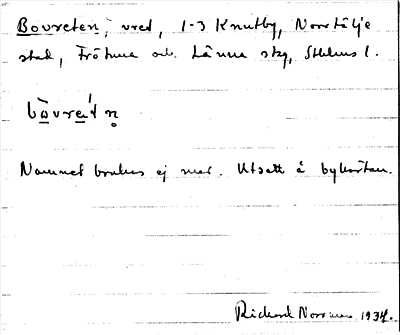 Bovreten, vret, 1-3 Knutby, Norrtälje
stad, Frötuna och Länna skg, Sthlms l.
bòvre´t n̥
Namnet brukas ej mer. Utsatt å bykartan.
Richard Norrman 1934.